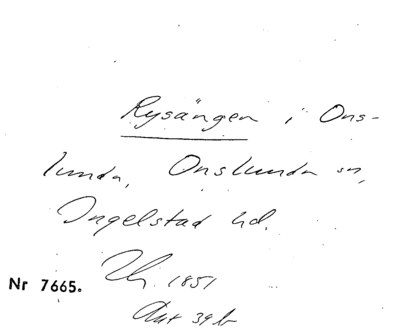 Rysängen i Ons-
lunda, Onslunda sn,
Ingelstad hd.
Nr 7665. 1851
Ant 39 b